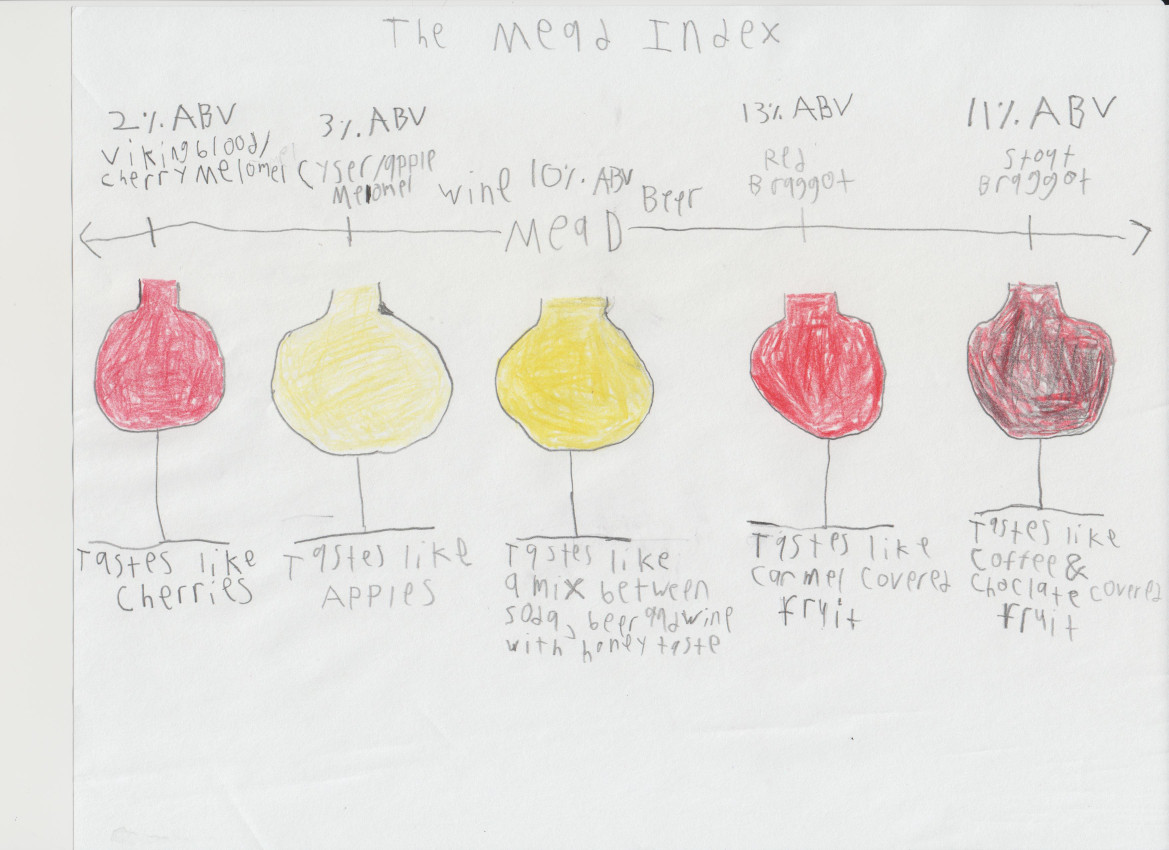 The Mead Index
2% ABV
Viking blood/
cherry Melomel
3% ABV
Cyser/apple
Melomel
wine
10% ABV
Beer
Mead
13% ABV
Red
Braggot
11% ABV
Stout
Braggot
Tastes like
Cherries
Tastes like
Apples
Tastes like
a mix between
soda, beer and wine
with honey taste
Tastes like
Carmel Covered
fruit
Tastes like
Coffee &
Choclate covered
fruit